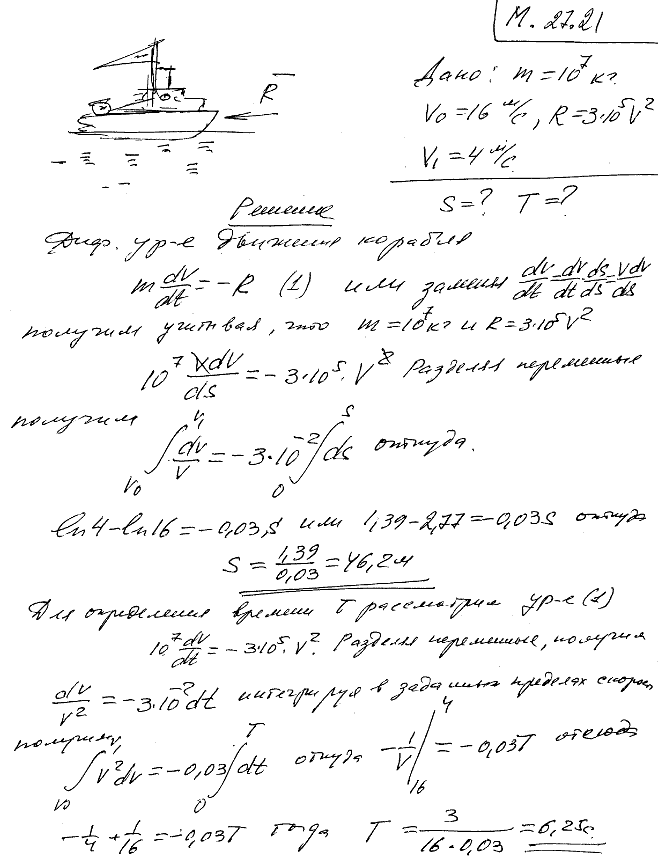 М. 27.21
R
Дано: m = 10⁷ кг
V₀ = 16 м/с, R = 3·10⁵V²
V₁ = 4 м/с
S = ? T = ?
Решение
Диф. ур-е движения корабля
m dv/dt = -R (1) или заменив dv/dt = dv/dt · ds/ds = vdv/ds
получим учитывая, что m = 10⁷ кг и R = 3·10⁵V²
10⁷ VdV/ds = -3·10⁵·V² Разделяя переменные
получим
∫_{V₀}^{V₁} dv/v = -3·10⁻² ∫_{0}^{S} ds откуда.
ln4 - ln16 = -0,03S или 1,39 - 2,77 = -0,03S откуда
S = 1,39/0,03 = 46,2 м
Для определения времени T рассмотрим ур-е (1)
10⁷ dv/dt = -3·10⁵·V². Разделяя переменные, получим
dv/V² = -3·10⁻² dt интегрируя в заданных пределах скорос
получим
∫_{V₀}^{V₁} V²dV = -0,03 ∫_{0}^{T} dt откуда -1/V |_{16}^{4} = -0,03T отсюда
-1/4 + 1/16 = -0,03T тогда T = 3/(16·0,03) = 6,25с.